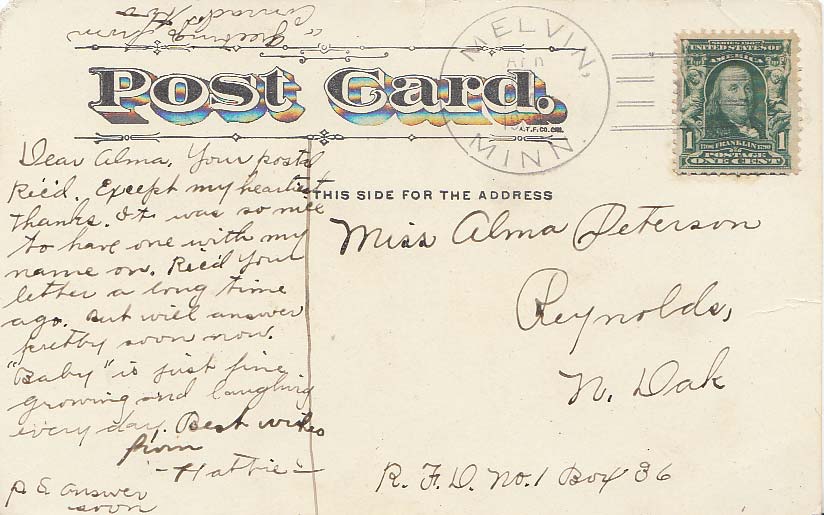 a greeting from
MELVIN,
MINN.
SERIES 1902
UNITED STATES OF
AMERICA
1706 FRANKLIN 1790
1 POSTAGE 1
ONE CENT
Post Card.
A.T.F. CO. CHI.
THIS SIDE FOR THE ADDRESS
Dear Alma, Your postal
Rec'd. Except my heartiest
thanks. It was so nice
to have one with my
name on. Rec'd your
letter a long time
ago. But will answer
pretty soon now.
"Baby" is just fine
growing and laughing
every day. Best wishes
from
- Hattie -
P S answer
soon
Miss Alma Peterson
Reynolds,
N. Dak
R. F. D. No. 1 Box 36